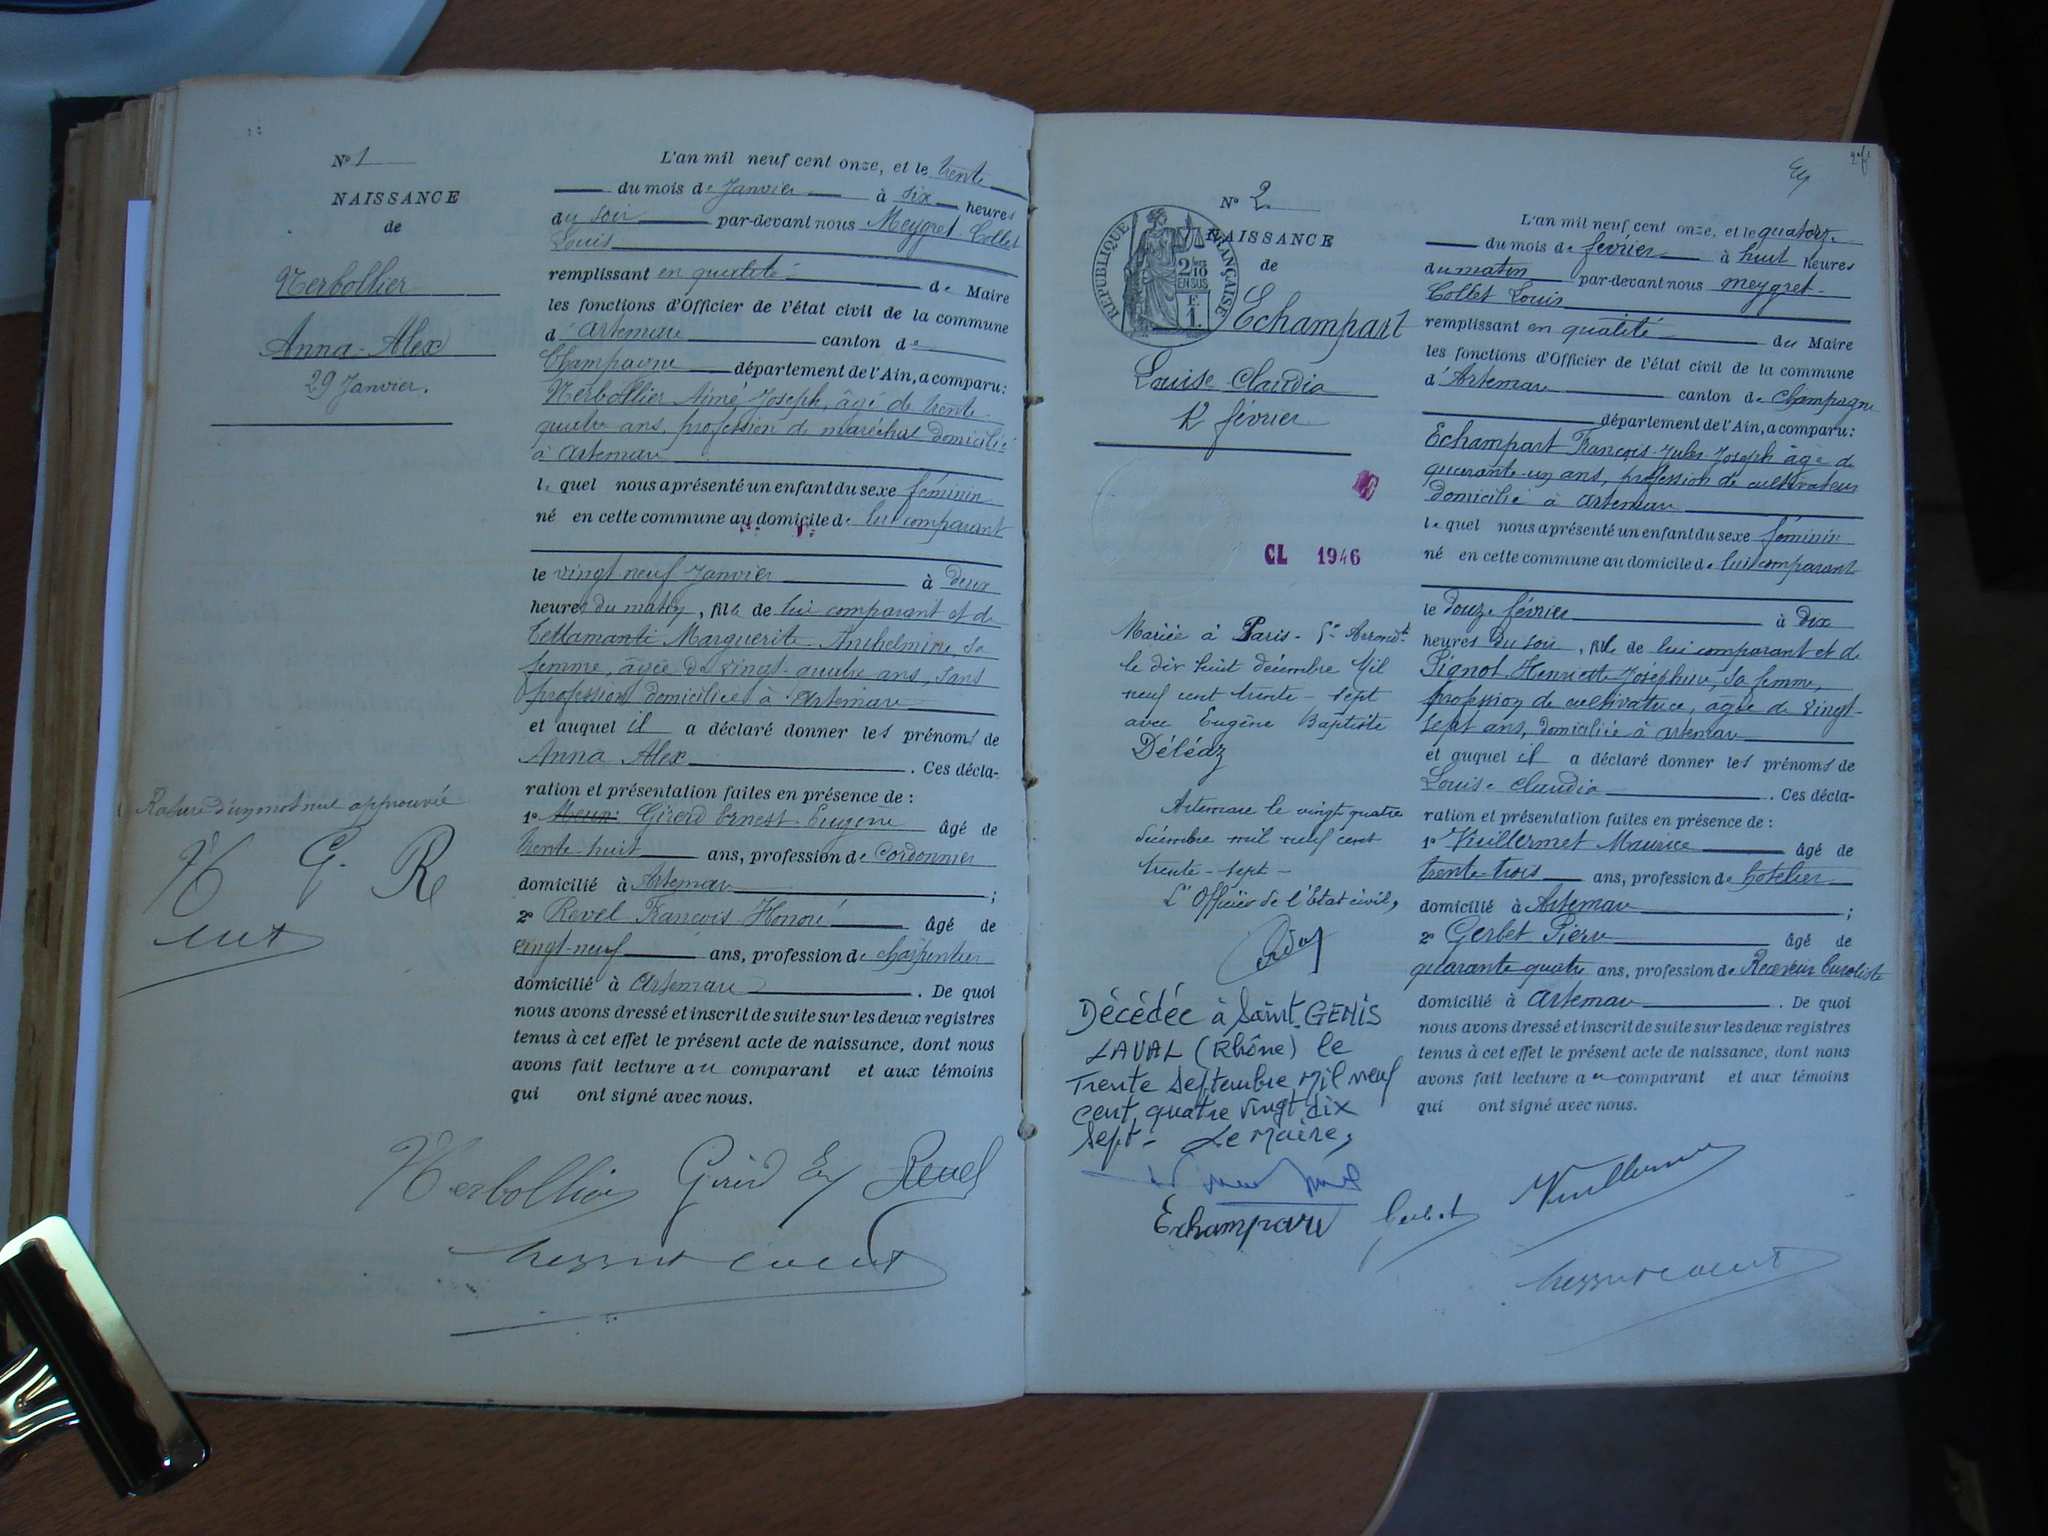 N° 1
NAISSANCE
de
Nerbollier
Anna-Alex
29 Janvier.
Rature d'un mot nul approuvée
N G. R
L'an mil neuf cent onze, et le trente
du mois de Janvier à six heures
du soir par-devant nous Meygret Collet
Louis
remplissant en qualité de Maire
les fonctions d'Officier de l'état civil de la commune
d'Artemare canton de
Champagne département de l'Ain, a comparu:
Nerbollier Aimé Joseph, âgé de trente
quatre ans, profession de maréchal domicilié
à Artemare
lequel nous a présenté un enfant du sexe féminin
né en cette commune au domicile de lui comparant
le vingt neuf Janvier à deux
heures du matin, fille de lui comparant et de
Tettamanti Marguerite Anthelmine, sa
femme, âgée de vingt-quatre ans, sans
profession domiciliée à Artemare
et auquel il a déclaré donner les prénoms de
Anna Alex. Ces décla-
ration et présentation faites en présence de :
1° Girerd Ernest Eugène âgé de
trente-huit ans, profession de cordonnier
domicilié à Artemare ;
2° Revel François Honoré âgé de
vingt-neuf ans, profession de charpentier
domicilié à Artemare. De quoi
nous avons dressé et inscrit de suite sur les deux registres
tenus à cet effet le présent acte de naissance, dont nous
avons fait lecture au comparant et aux témoins
qui ont signé avec nous.
Nerbollier Girerd Eg Revel
N° 2
RÉPUBLIQUE FRANÇAISE
2/10
EN SUS
F.
1.
NAISSANCE
de
Echampart
Louise-Claudia
12 février
CL 1946
Mariée à Paris - 5e Arrondt
le dix huit décembre Mil
neuf cent trente-sept
avec Eugène Baptiste
Déléaz
Artemare le vingt quatre
décembre mil neuf cent
trente-sept-
L'Officier de l'Etat civil,
Décédée à Saint.GENIS
LAVAL (Rhône) le
Trente Septembre Mil neuf
cent quatre vingt dix
Sept- Le Maire,
L'an mil neuf cent onze, et le quatorze
du mois de février à huit heures
du matin par-devant nous Meygret-
Collet Louis
remplissant en qualité de Maire
les fonctions d'Officier de l'état civil de la commune
d'Artemare canton de Champagne
département de l'Ain, a comparu:
Echampart François-Jules-Joseph âgé de
quarante-un ans, profession de cultivateur
domicilié à Artemare
lequel nous a présenté un enfant du sexe féminin
né en cette commune au domicile de lui comparant
le douze février à dix
heures du soir, fille de lui comparant et de
Pignot Henriette Joséphine, sa femme,
profession de cultivatrice, âgée de vingt-
sept ans, domiciliée à Artemare
et auquel il a déclaré donner les prénoms de
Louise Claudia. Ces décla-
ration et présentation faites en présence de :
1° Vuillermet Maurice âgé de
trente-trois ans, profession de hôtelier
domicilié à Artemare ;
2° Gerbet Pierre âgé de
quarante quatre ans, profession de Receveur buraliste
domicilié à Artemare. De quoi
nous avons dressé et inscrit de suite sur les deux registres
tenus à cet effet le présent acte de naissance, dont nous
avons fait lecture au comparant et aux témoins
qui ont signé avec nous.
Echampard Gerbet Vuillermet